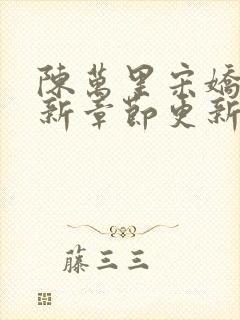 陳萬里宋嬌
新章節更新
藤三三